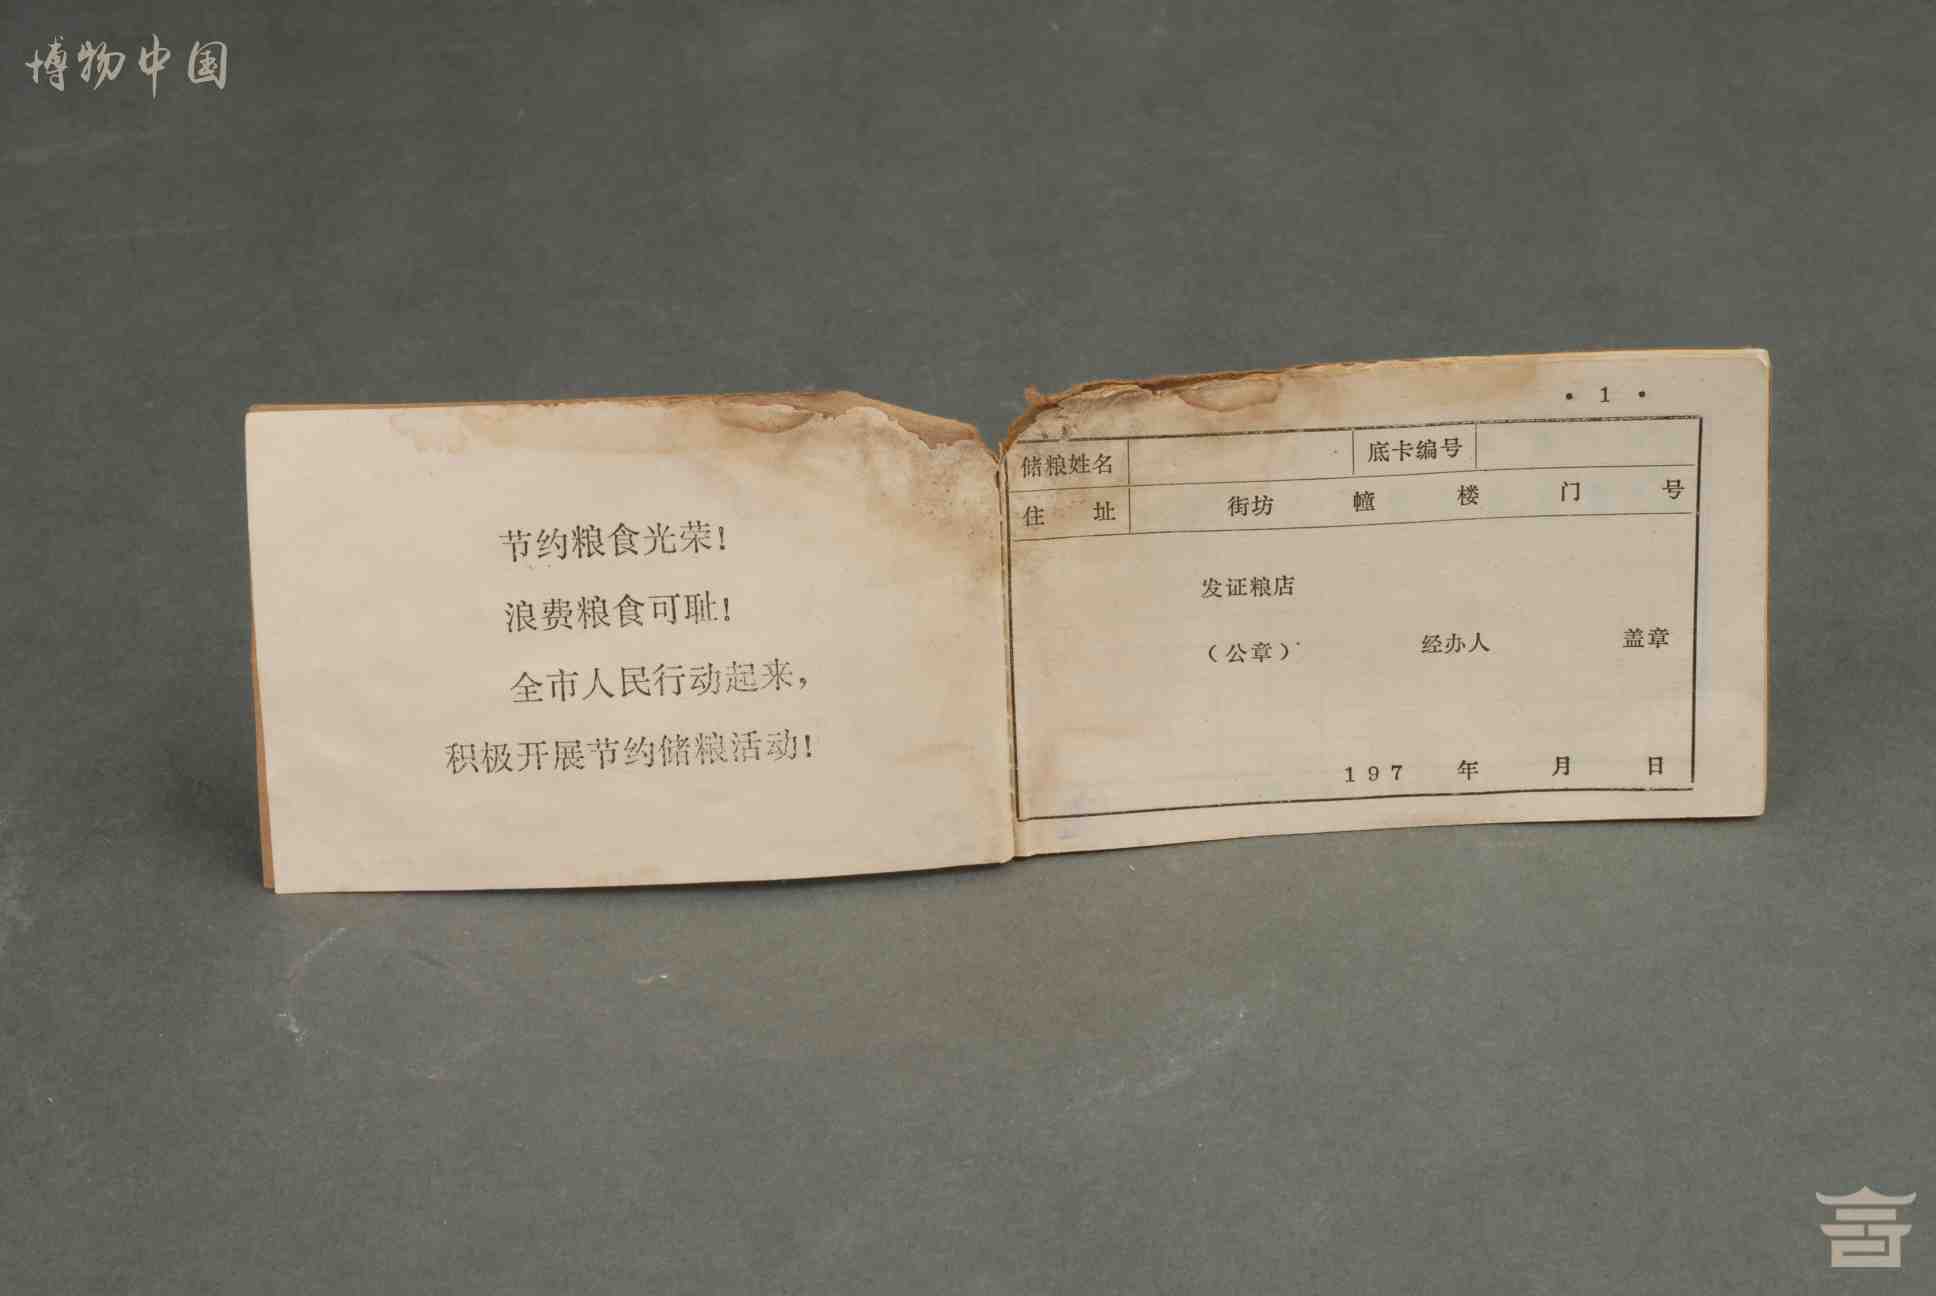 博物中国
节约粮食光荣！
浪费粮食可耻！
全市人民行动起来，
积极开展节约储粮活动！
· 1 ·
储粮姓名 底卡编号
住 址 街坊 幢 楼 门 号
发证粮店
（公章） 经办人 盖章
197 年 月 日